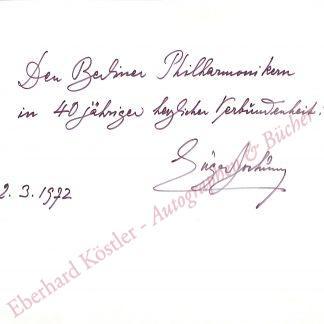 Den Berliner Philharmonikern
in 40 jähriger herzlicher Verbundenheit!
Eugen Jochum
2.3.1972
Eberhard Köstler - Autographen & Bücher